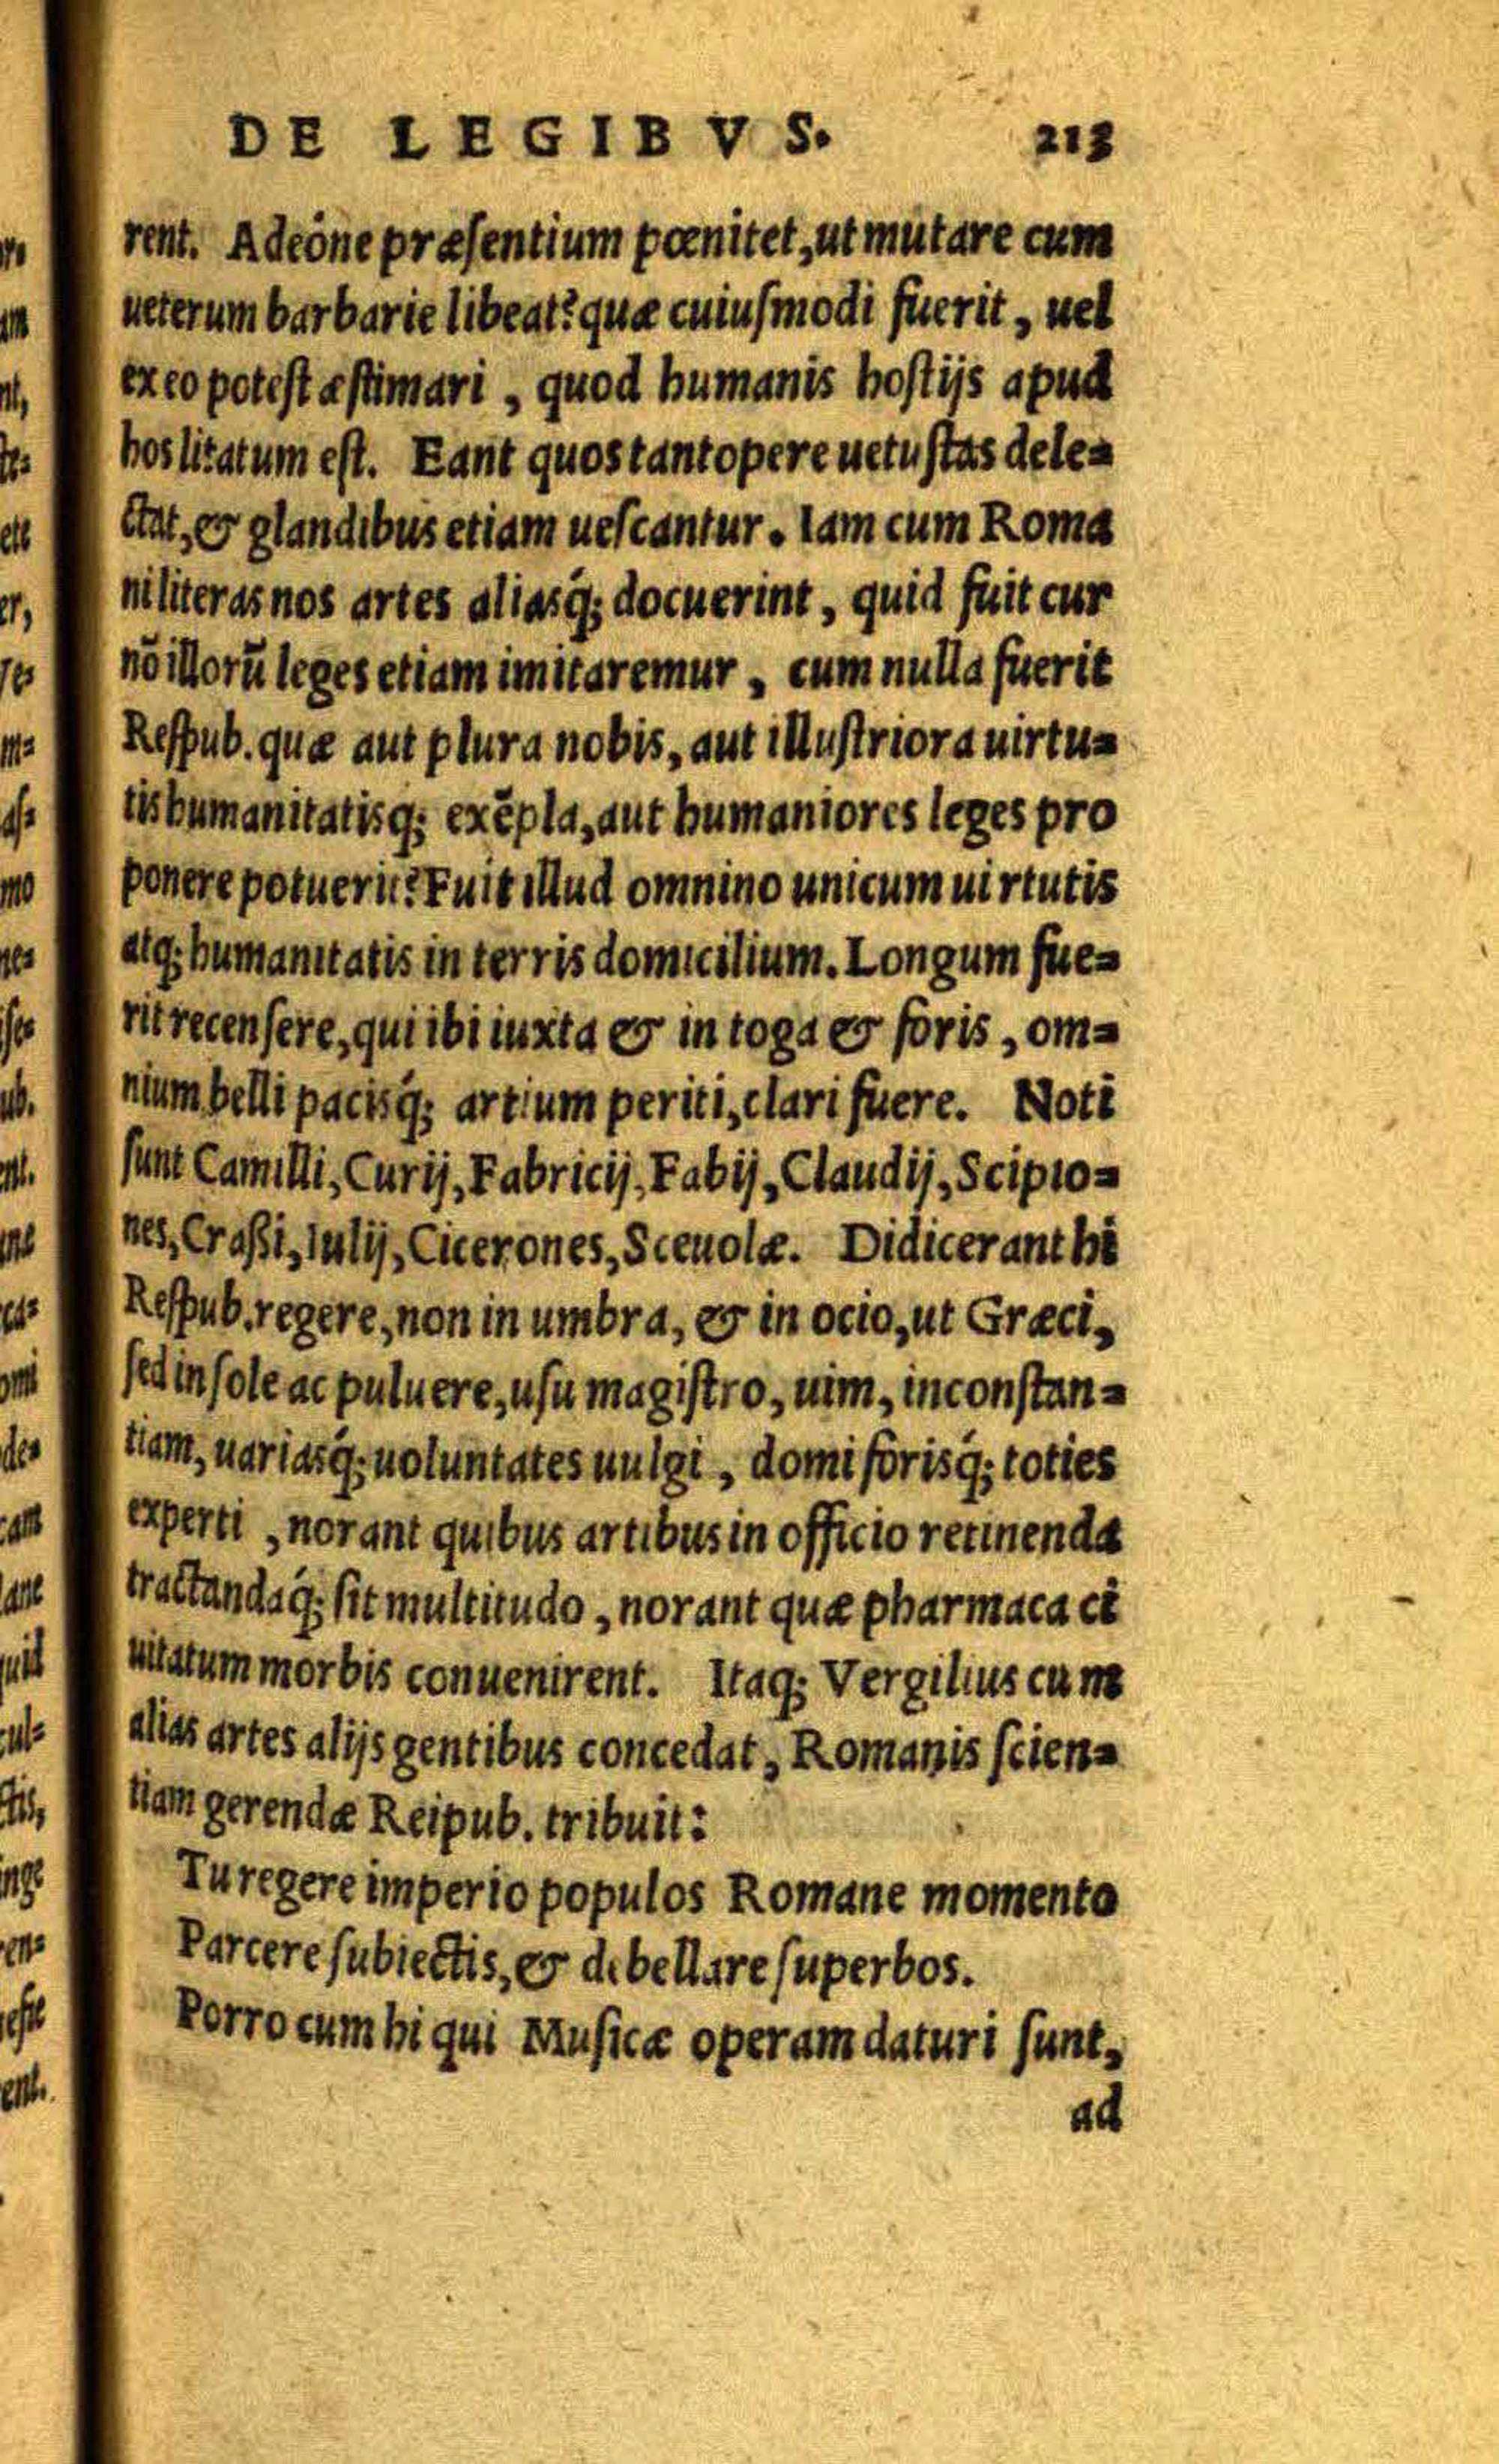 DE LEGIBVS. 213
rent. Adeóne præſentium pœnitet, ut mutare cum
ueterum barbarie libeat? quæ cuiuſmodi fuerit, uel
ex eo poteſt æſtimari, quod humanis hoſtijs apud
hos litatum eſt. Eant quos tantopere uetuſtas dele=
ctat, & glandibus etiam ueſcantur. Iam cum Roma
ni literas nos artes aliasq́; docuerint, quid fuit cur
nō illorū leges etiam imitaremur, cum nulla fuerit
Reſpub. quæ aut plura nobis, aut illuſtriora uirtu=
tis humanitatisq; exēpla, aut humaniores leges pro
ponere potuerit? Fuit illud omnino unicum uirtutis
atq; humanitatis in terris domicilium. Longum fue=
rit recenſere, qui ibi iuxta & in toga & foris, om=
nium belli pacisq́; artium periti, clari fuere. Noti
ſunt Camilli, Curij, Fabricij, Fabij, Claudij, Scipio=
nes, Craßi, Iulij, Cicerones, Sceuolæ. Didicerant hi
Reſpub. regere, non in umbra, & in ocio, ut Græci,
ſed in ſole ac puluere, uſu magiſtro, uim, inconſtan=
tiam, uariasq́; uoluntates uulgi, domi forisq́; toties
experti, norant quibus artibus in officio retinenda
tractandaq́; ſit multitudo, norant quæ pharmaca ci
uitatum morbis conuenirent. Itaq; Vergilius cum
alias artes alijs gentibus concedat, Romanis ſcien=
tiam gerendæ Reipub. tribuit:
Tu regere imperio populos Romane momento
Parcere ſubiectis, & debellare ſuperbos.
Porro cum hi qui Muſicæ operam daturi ſunt,
ad